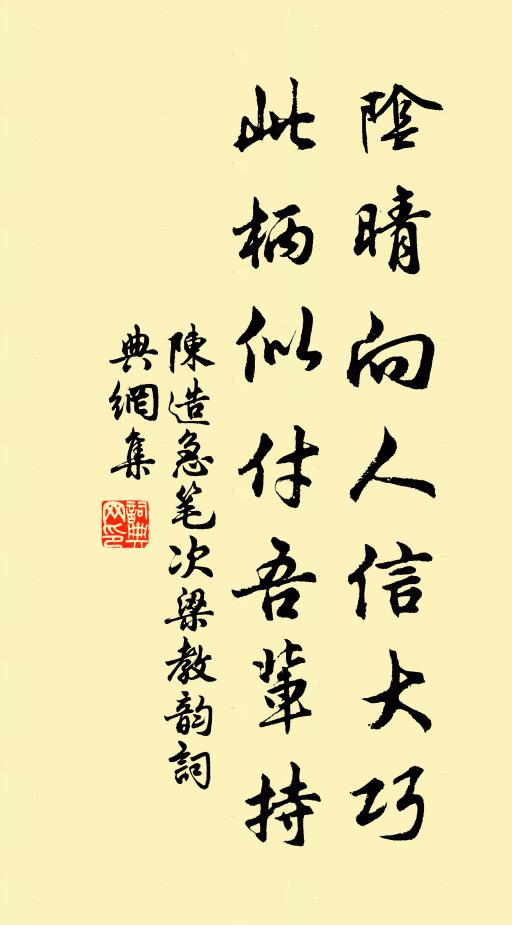 陰晴向人信大巧
此柄似付吾輩持
陳造急笔次梁教韵詞
典網集
詞典
网印